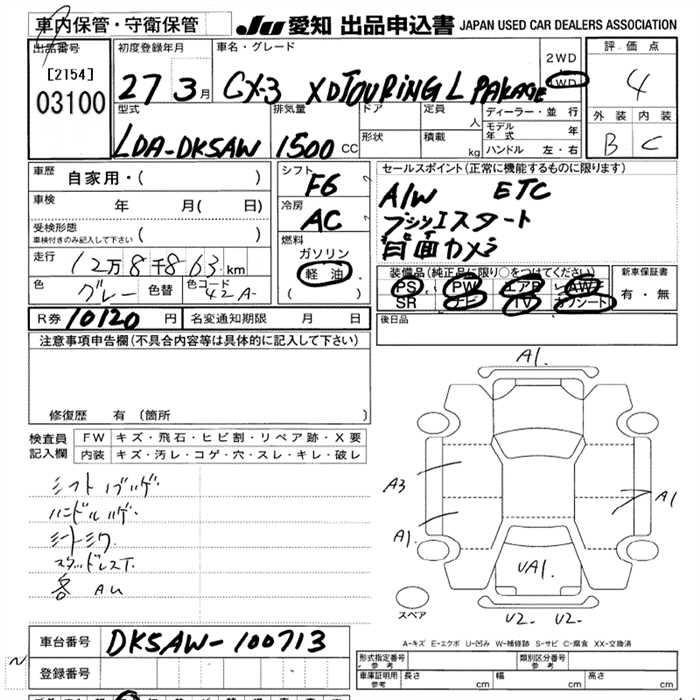 車内保管・守衛保管
JU 愛知 出品申込書 JAPAN USED CAR DEALERS ASSOCIATION
出品番号
[2154]
03100
初度登録年月
27 3月
車名・グレード
CX-3 XDTOURING L PAKAGE
2WD
4WD
評価点
4
外装 内装
B C
型式
LDA-DK5AW
排気量
1500 CC
ドア
形状
定員 人
積載 kg
ディーラー・並行
モデル年式 年
ハンドル 左・右
車歴 自家用・( )
車検 年 月( 日)
受検形態
車検付きのみ記入して下さい ( )
走行 12万8千863 km
色 グレー 色替 色コード 42A-
R券 10120 円 名変通知期限 月 日
シフト
F6
冷房
AC
燃料
ガソリン
軽油
( )
セールスポイント(正常に機能するものに限ります)
A/W ETC
プッシュスタート
装備品(純正品に限り○をつけてください)
PS PW エアB レザー AW
SR ナビ TV カワシート
新車保証書
有・無
後日品
注意事項申告欄(不具合内容等は具体的に記入して下さい)
修復歴 有(箇所 )
検査員記入欄
FW キズ・飛石・ヒビ割・リペア跡・X要
内装 キズ・汚レ・コゲ・穴・スレ・キレ・破レ
シフトハゲ
ハンドルハゲ
シートシワ
スタッドレスT.
各 AU
A1.
A3
A1.
A1
UA1.
U2- U2-
スペア
A-キズ E-エクボ U-凹み W-補修跡 S-サビ C-腐食 XX-交換済
車台番号 DK5AW-100713
登録番号
形式指定番号 参考
類別区分番号 参考
車庫証明用 参考 長さ cm 幅 cm 高さ cm